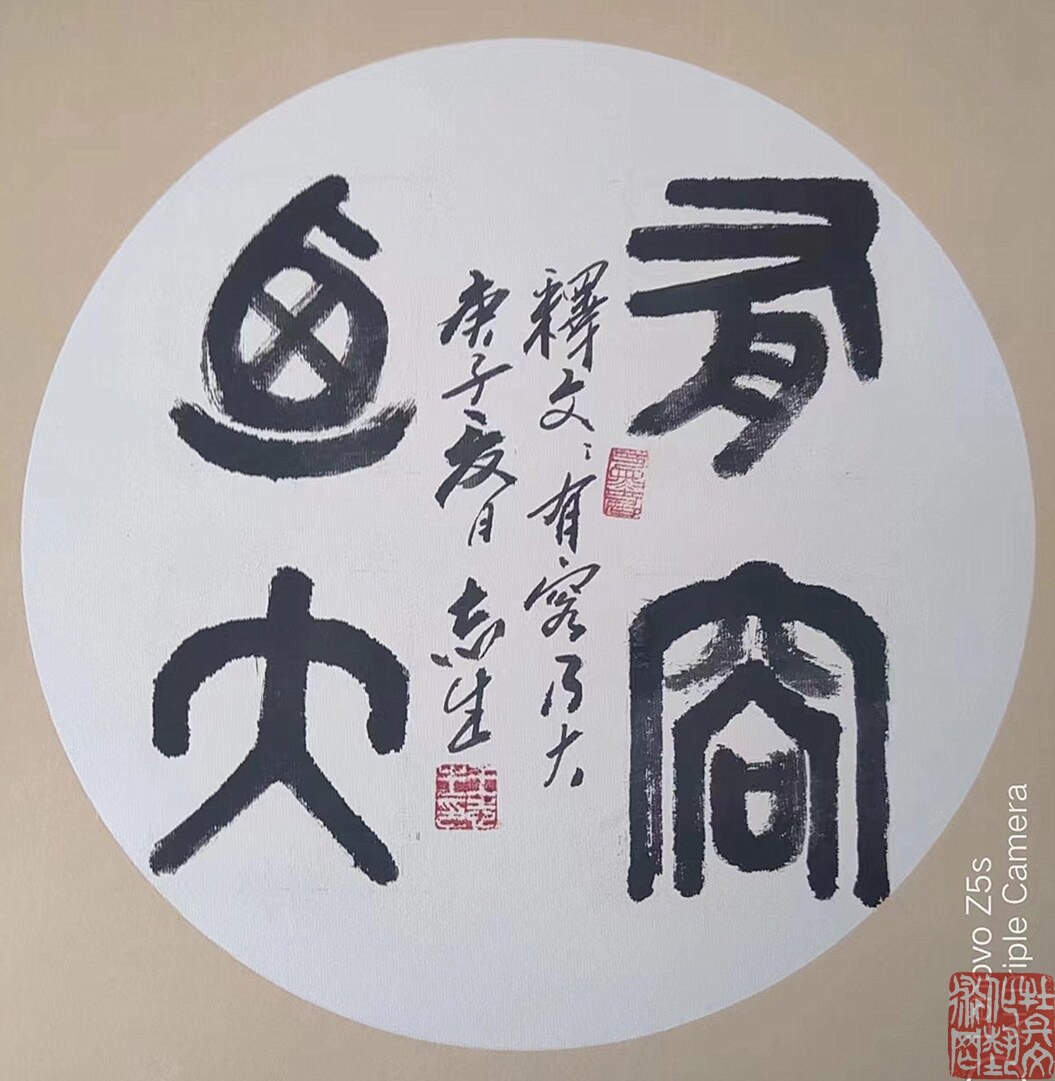 有容
迺大
釋文：有容乃大
庚子夏月 志生
ovo Z5s
riple Camera